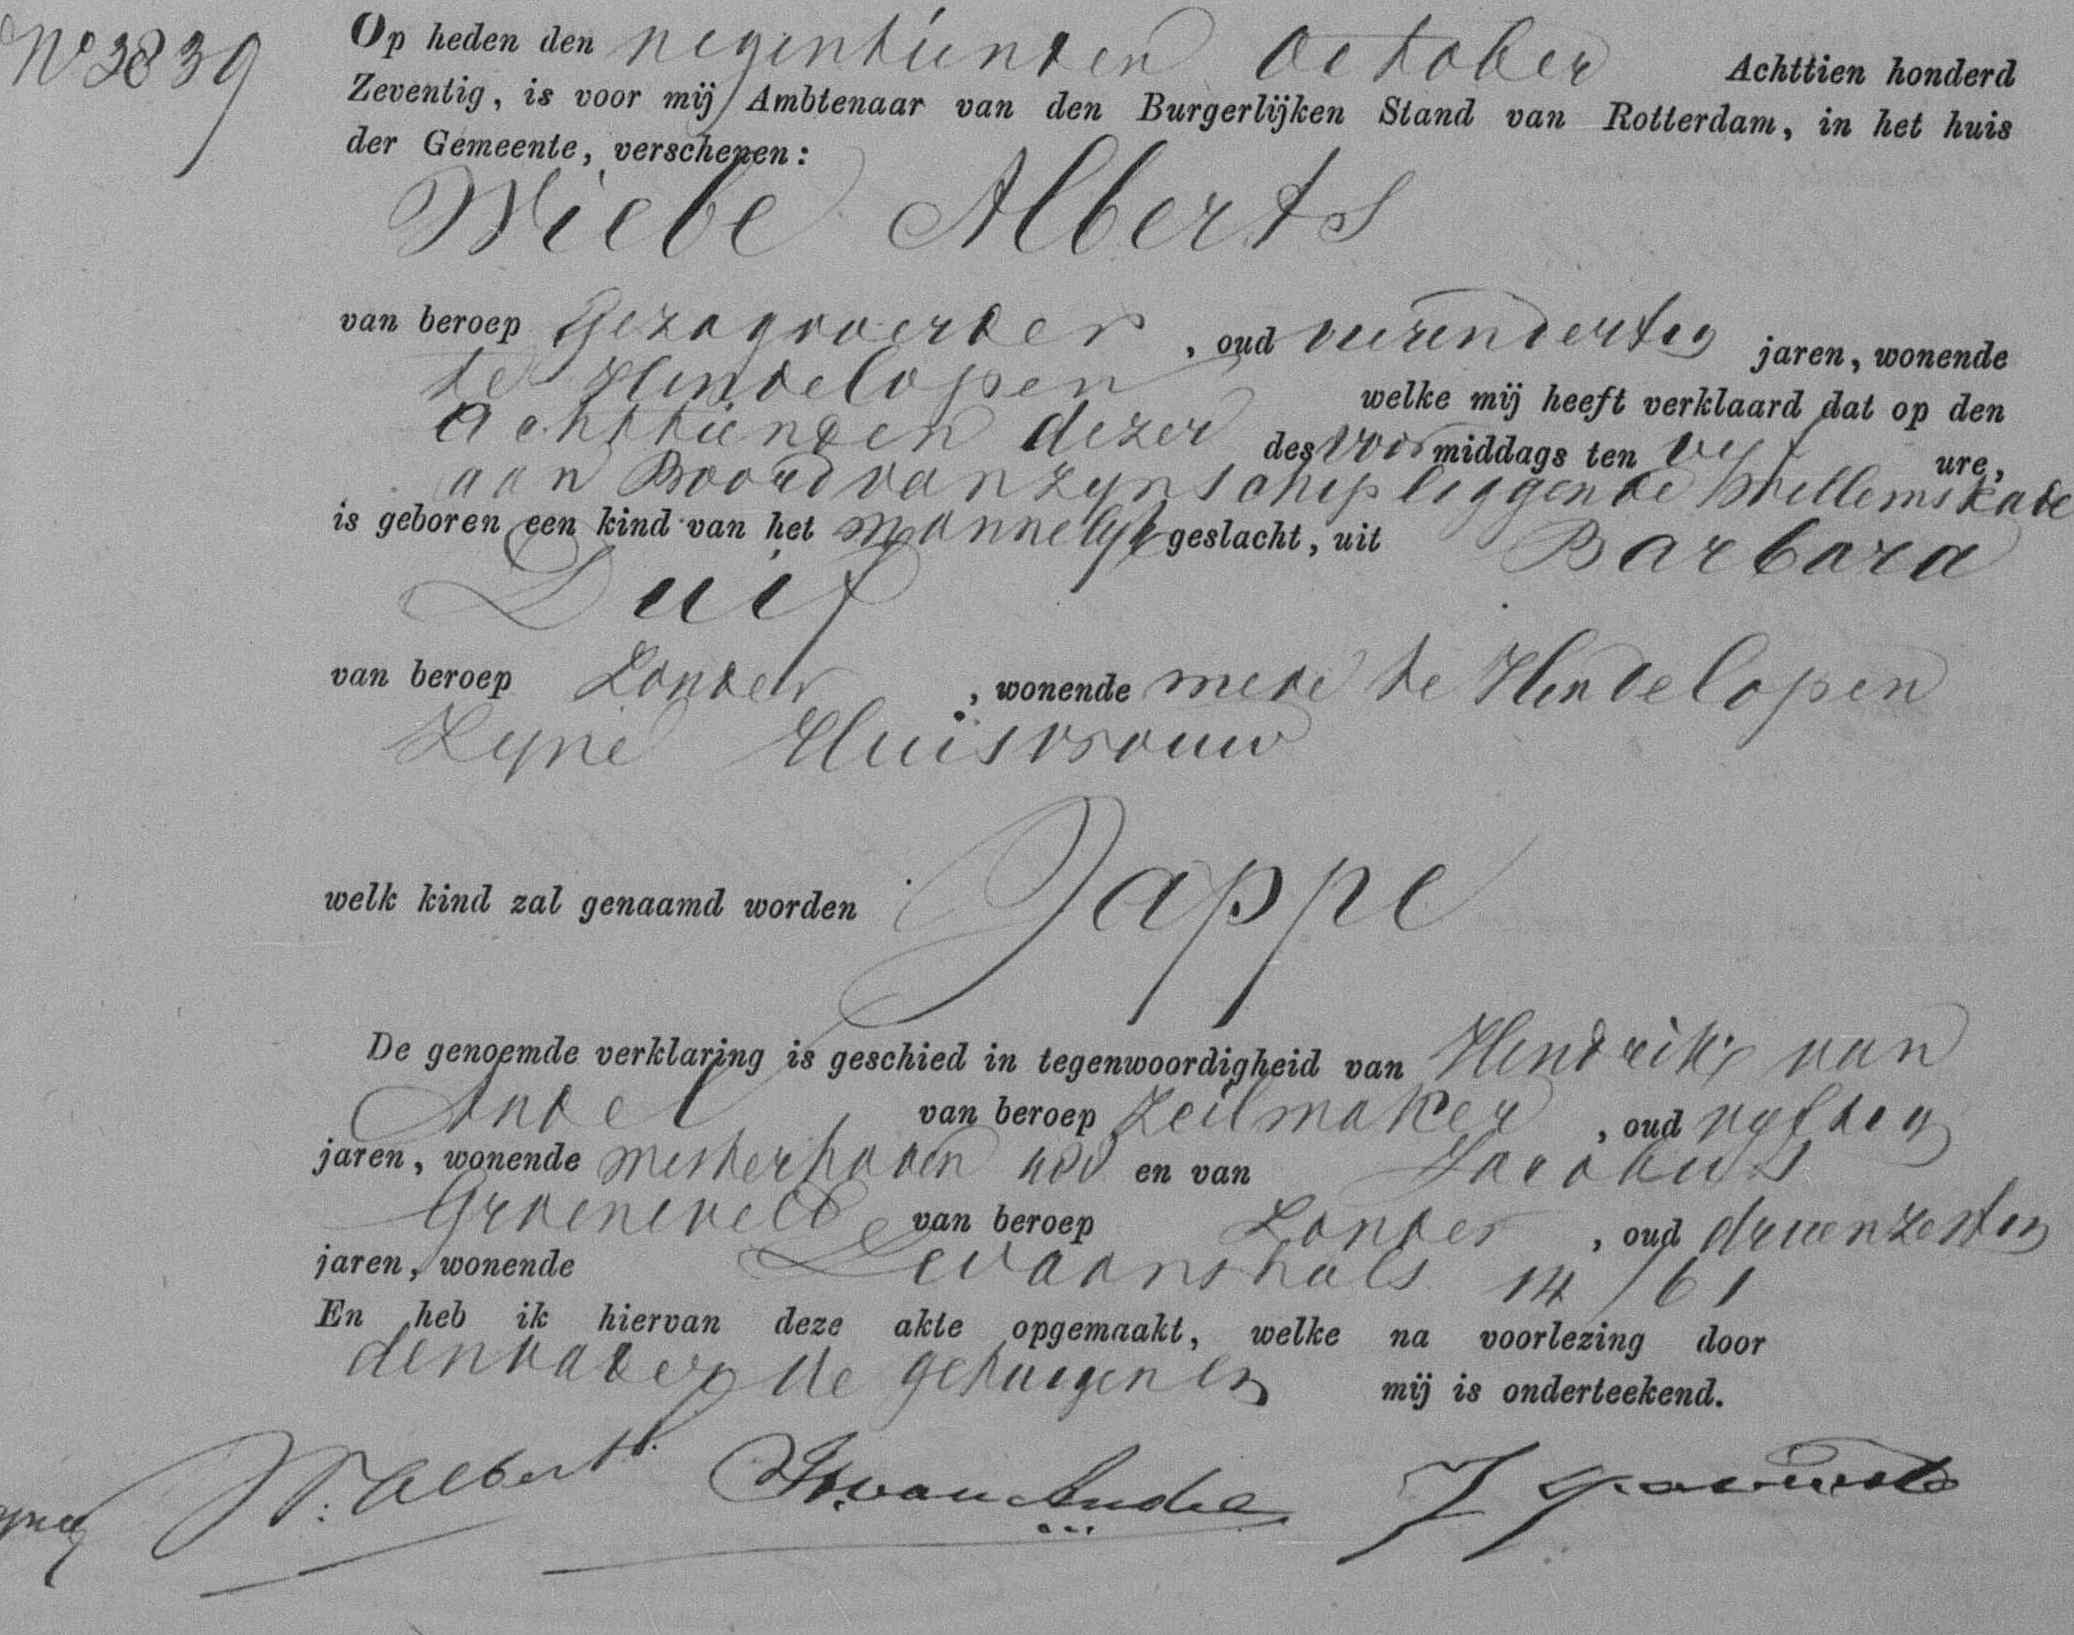 No 2839
Op heden den negentienden October Achttien honderd
Zeventig, is voor mij Ambtenaar van den Burgerlijken Stand van Rotterdam, in het huis
der Gemeente, verschenen:
Wiebe Alberts
van beroep Gezagvoerder, oud vierendertig jaren, wonende
te Hindelopen welke mij heeft verklaard dat op den
achttienden dezer des voormiddags ten vijf ure,
aan Boord van zijn schip liggende Willemskade
is geboren een kind van het mannelijk geslacht, uit Barbara
Duif
van beroep Zonder, wonende mede te Hindelopen
Zijne Huisvrouw
welk kind zal genaamd worden Jappe
De genoemde verklaring is geschied in tegenwoordigheid van Hendrik van
Andel van beroep Zeilmaker, oud vijftig
jaren, wonende en van Jacobus
Groeneveld van beroep Zonder, oud drieenzestig
jaren, wonende 14/61
En heb ik hiervan deze akte opgemaakt, welke na voorlezing door
den vader de getuigen en mij is onderteekend.
W. Alberts H. van Andel J Groeneveld